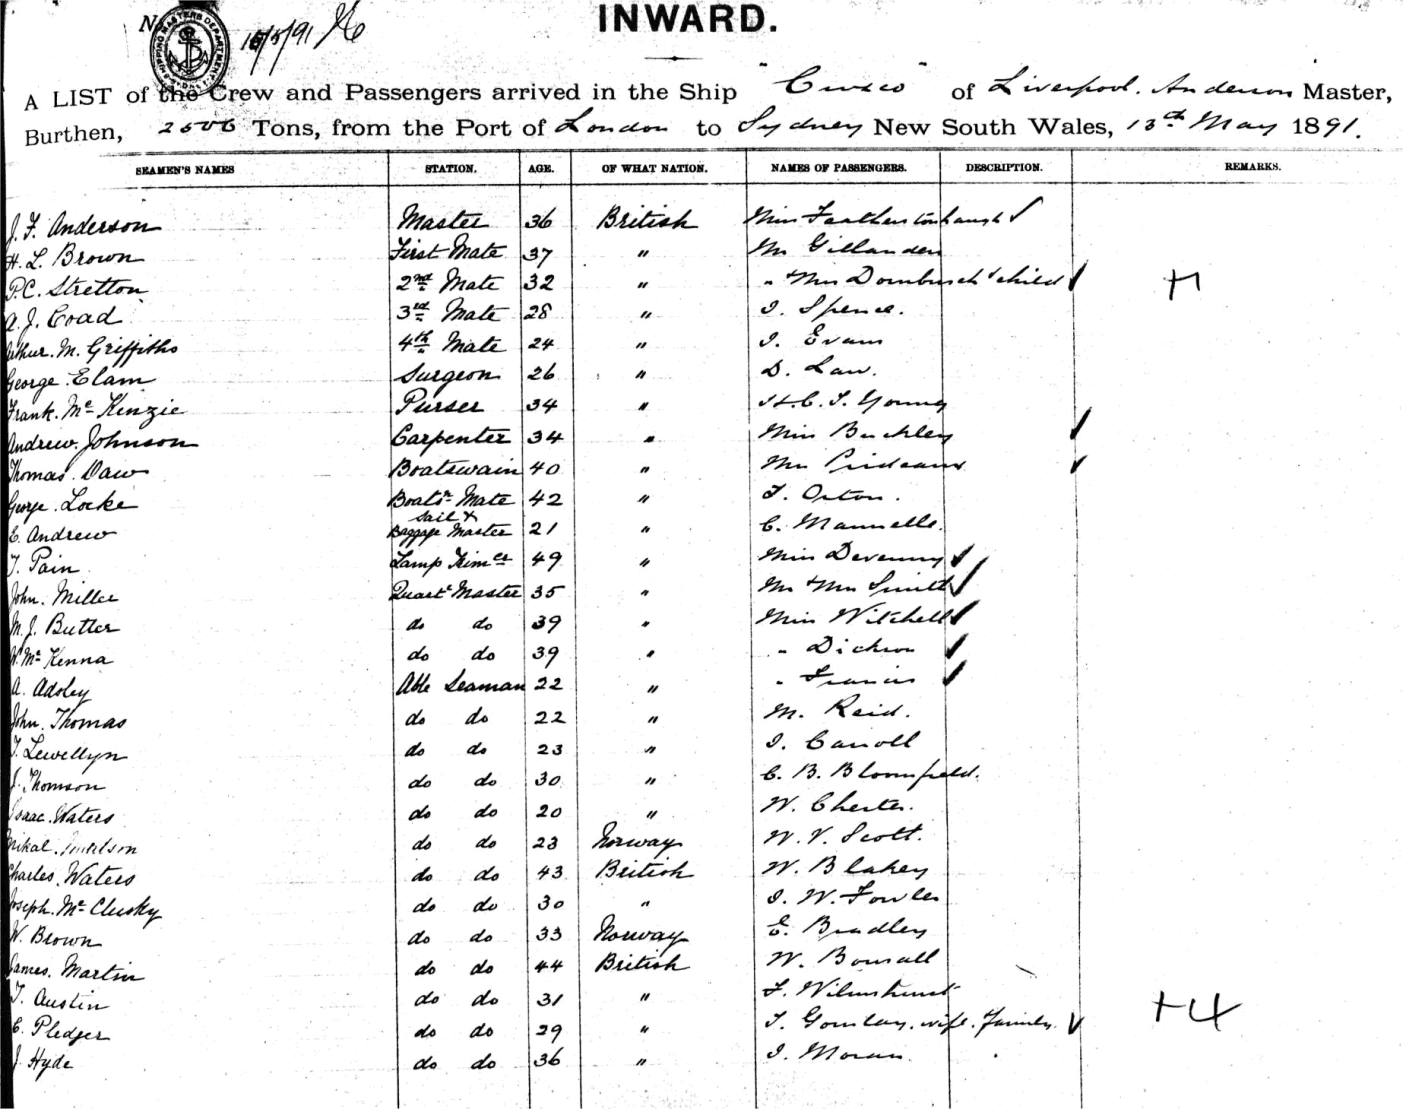 INWARD.
N
15/5/91
A LIST of the Crew and Passengers arrived in the Ship "Cuzco" of Liverpool. Anderson Master,
Burthen, Tons, from the Port of London to Sydney New South Wales, 13th May 1891.
SEAMEN'S NAMES STATION. AGE. OF WHAT NATION. NAMES OF PASSENGERS. DESCRIPTION. REMARKS.
J. F. Anderson Master 36 British Miss Featherstonhaugh
H. L. Brown First Mate 37 " Mr Gillanders
P.C. Stretton 2nd Mate 32 " " & Mrs Dornbusch & child +1
A. J. Coad 3rd Mate 28 " J. Spence.
Arthur. M. Griffiths 4th Mate 24 " J. Evans
George. Elam Surgeon 26 " D. Law.
Frank. Mc Kenzie Purser 34 " H. C. J. Young
Andrew. Johnson Carpenter 34 " Miss Buckley
Thomas. Daw Boatswain 40 " Mrs Prideaux
George. Locke Boatsn Mate 42 " J. Orton.
E. Andrew Sail & Baggage Master 21 " C.
T. Pain Lamp Trimer 49 " Miss Devenny
John. Miller Quartr Master 35 " Mr & Mrs Smith
M. J. Butler do do 39 " Miss Witchell
W. Mc Kenna do do 39 " " Dickson
A. Adsley Able Seaman 22 " " Francis
John. Thomas do do 22 " M. Reid.
T. Lewellyn do do 23 " J. Carroll
J. Thomson do do 30 " C. B. Bloomfield.
Isaac. Waters do do 20 " W. Chester.
Mikal. do do 23 Norway W. V. Scott.
Charles. Waters do do 43 British W. Blakey
Joseph. Mc Clusky do do 30 " J. W. Fowler
W. Brown do do 33 Norway E. Bradley
James. Martin do do 44 British W. Bonsall
T. Austin do do 31 " F. Wilmshurst
C. Pledger do do 29 " J. Gourlay. wife. Family. +4
J. Hyde do do 36 " J. Moran